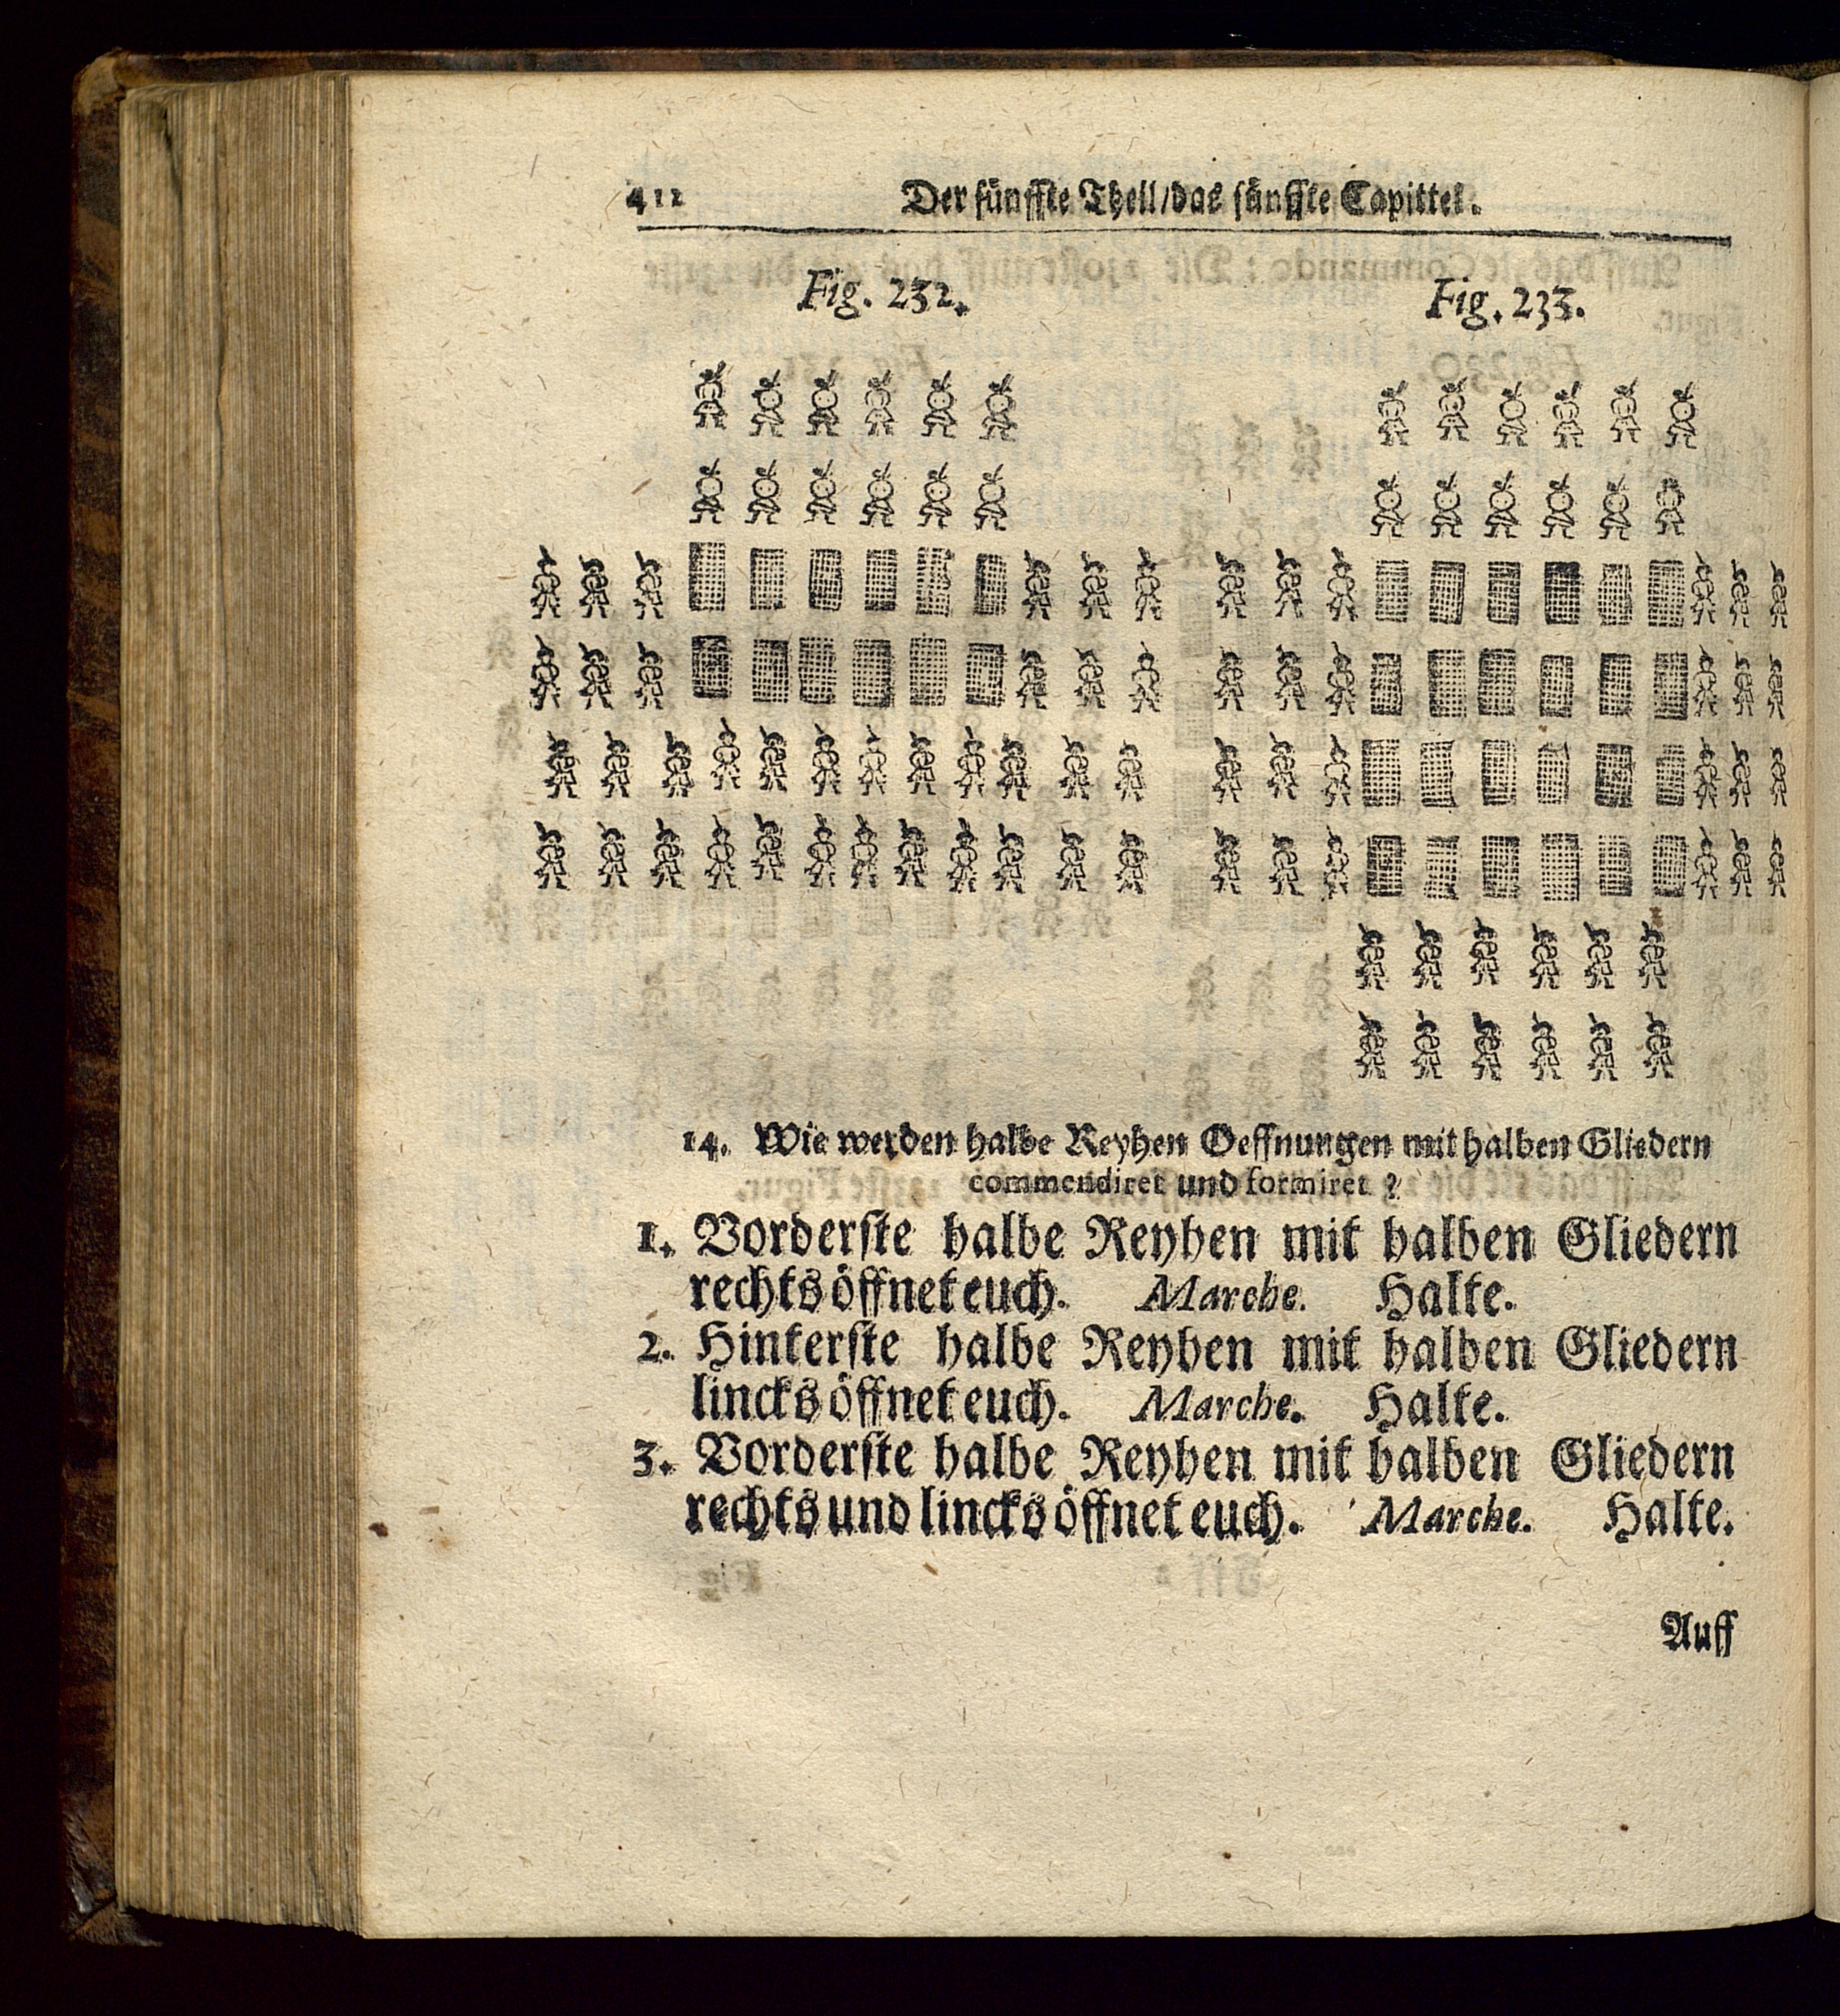 412 Der fünffte Theil/das fünffte Capittel.
Fig. 232. Fig. 233.
14. Wie werden halbe Reyhen Oeffnungen mit halben Gliedern
commendiret und formiret ?
1. Vorderste halbe Reyhen mit halben Gliedern
rechts öffnet euch. Marche. Halte.
2. Hinterste halbe Reyhen mit halben Gliedern
lincks öffnet euch. Marche. Halte.
3. Vorderste halbe Reyhen mit halben Gliedern
rechts und lincks öffnet euch. Marche. Halte.
Auff